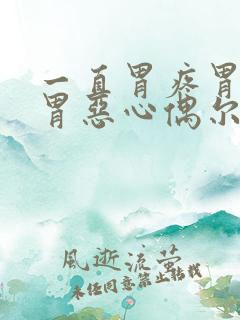 一直胃疼胃
胃恶心偶尔
风逝流萤
未经同意禁止转载